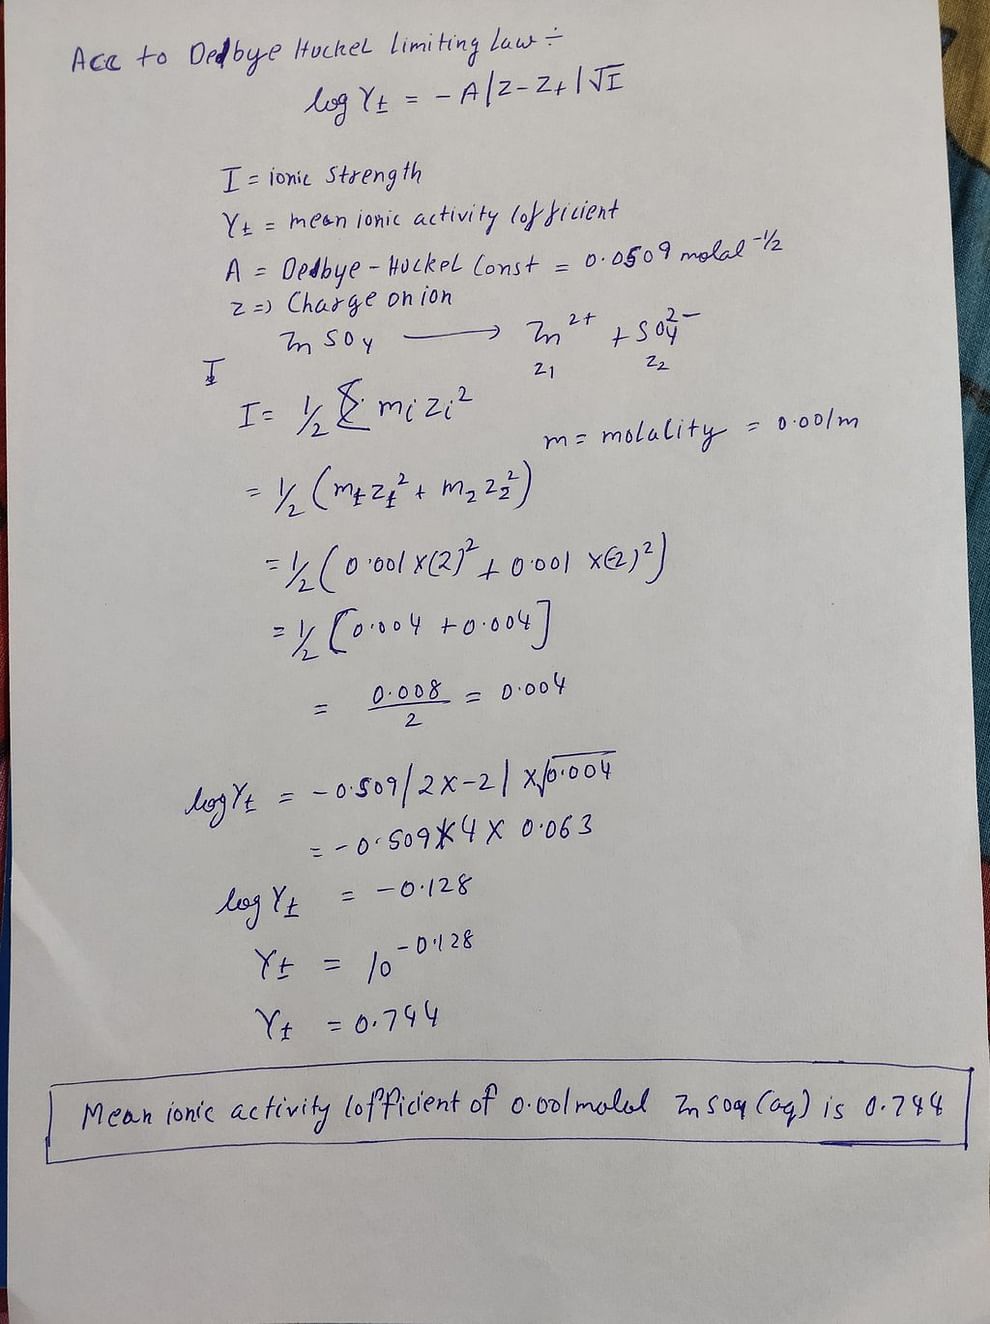 Acc to Debye Huckel limiting Law ÷
log γ± = - A|Z- Z+|√I
I = ionic strength
γ± = mean ionic activity cofficient
A = Debye-Huckel Const = 0.0509 molal -1/2
z => Charge on ion
ZnSO4 ⟶ Zn2+ + SO4 2-
z1 z2
I
I = 1/2 Σ mi zi²
m = molality = 0.001m
= 1/2 (m± z±² + m2 z2²)
= 1/2 (0.001 x(2)² + 0.001 x(-2)²)
= 1/2 [0.004 + 0.004]
= 0.008/2 = 0.004
log γ± = -0.509|2x-2| x√0.004
= -0.509 x 4 x 0.063
log γ± = -0.128
γ± = 10^-0.128
γ± = 0.744
Mean ionic activity cofficient of 0.001molal ZnSO4 (aq) is 0.744